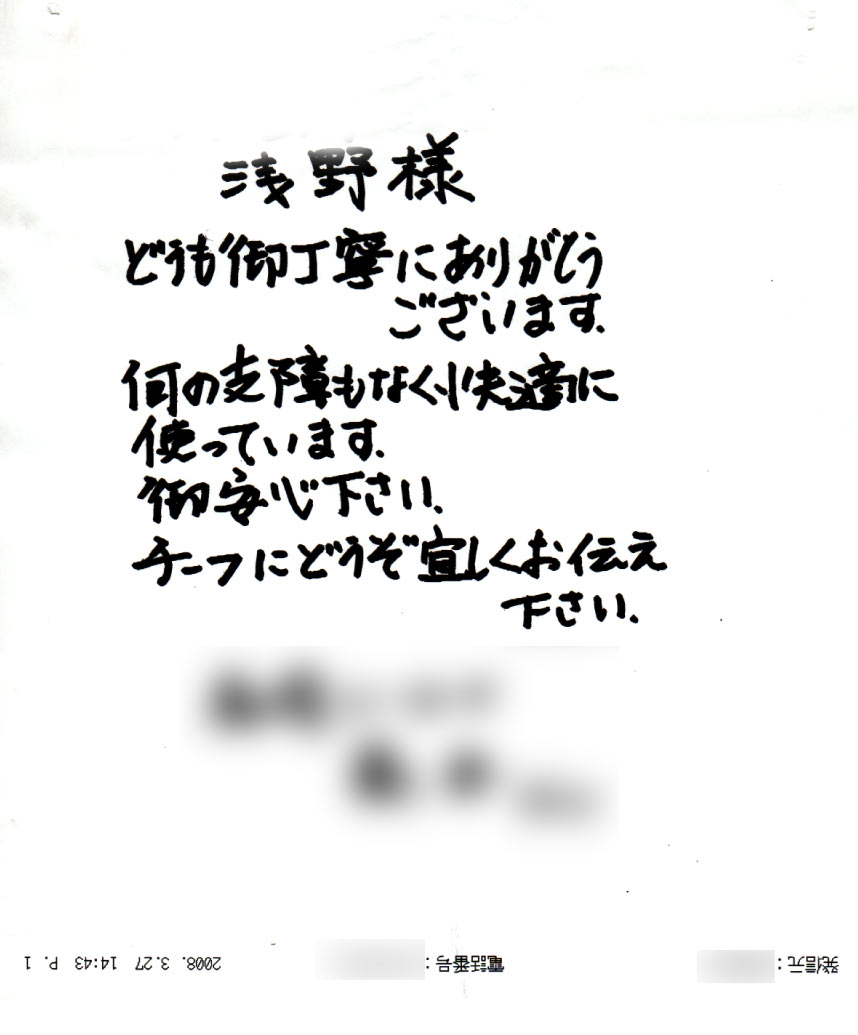 浅野様
どうも御丁寧にありがとう
ございます.
何の支障もなく、快適に
使っています.
御安心下さい.
チーフにどうぞ宜しくお伝え
下さい.
発信元：
電話番号：
2008. 3.27 14:43 P. 1